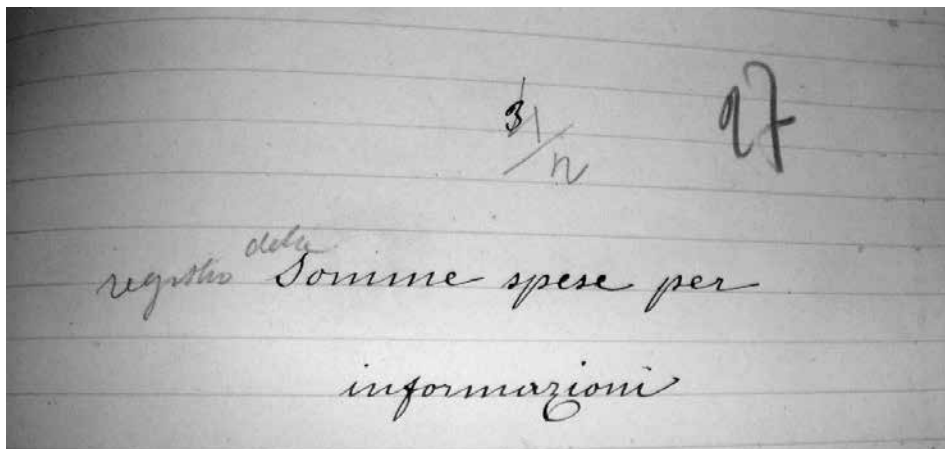 27
registro delle Somme spese per
informazioni